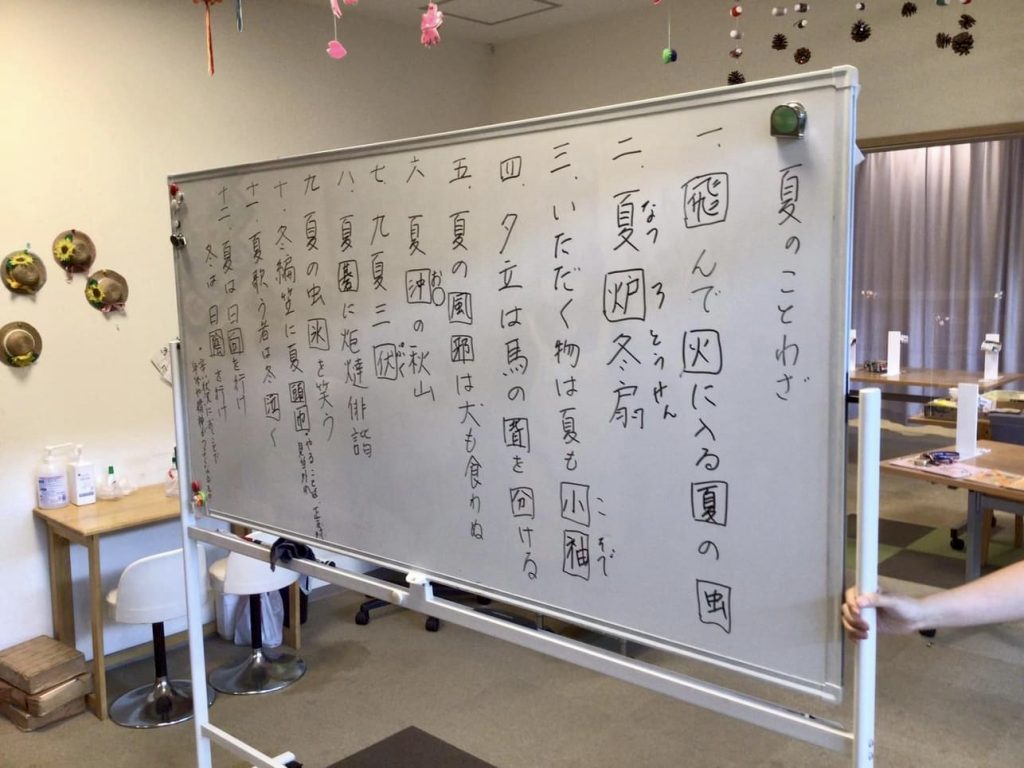 夏のことわざ
一、飛んで火に入る夏の虫
二、夏炉冬扇
なつ ろ とうせん
三、いただく物は夏も小袖
こそで
四、夕立は馬の背を分ける
五、夏の風邪は犬も食わぬ
六 夏沖の秋山
七、九夏三伏
八、夏に炬燵俳諧
九 夏の虫氷を笑う
十、冬編笠に夏頭巾
十一、夏歌う者は冬泣く
十二、夏は日向を行け
冬は日陰を行け